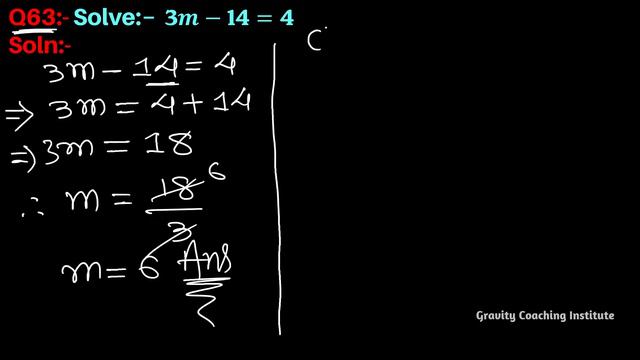 Q63:- Solve:- 3m − 14 = 4
Soln:-
3m − 14 = 4
⇒ 3m = 4 + 14
⇒ 3m = 18
∴ m = 18/3 6
m = 6 Ans
C
Gravity Coaching Institute